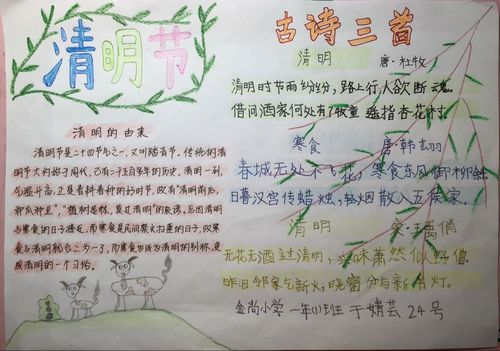 清明节
清明的由来
清明节是二十四节气之一,又叫踏青节。传统的清
明节大约始于周代,已有二千五百多年的历史。清明一到,
气温升高,正是春耕春种的好时节,故有"清明前后,
种瓜种豆","植树造林,莫过清明"的农谚。后因清明
与寒食的日子接近,而寒食是民间禁火扫墓的日子,故寒
食与清明就合二为一了,而寒食也成为清明的别称,变
成清明的一个习俗。
古诗三首
清明
唐·杜牧
清明时节雨纷纷,路上行人欲断魂。
借问酒家何处有?牧童遥指杏花村。
寒食
唐·韩翃
春城无处不飞花,寒食东风御柳斜。
日暮汉宫传蜡烛,轻烟散入五侯家。
清明
宋·王禹偁
无花无酒过清明,兴味萧然似野僧
昨日邻家乞新火,晓窗分与读书灯。
金尚小学 一年(1)班 于婧芸 24号